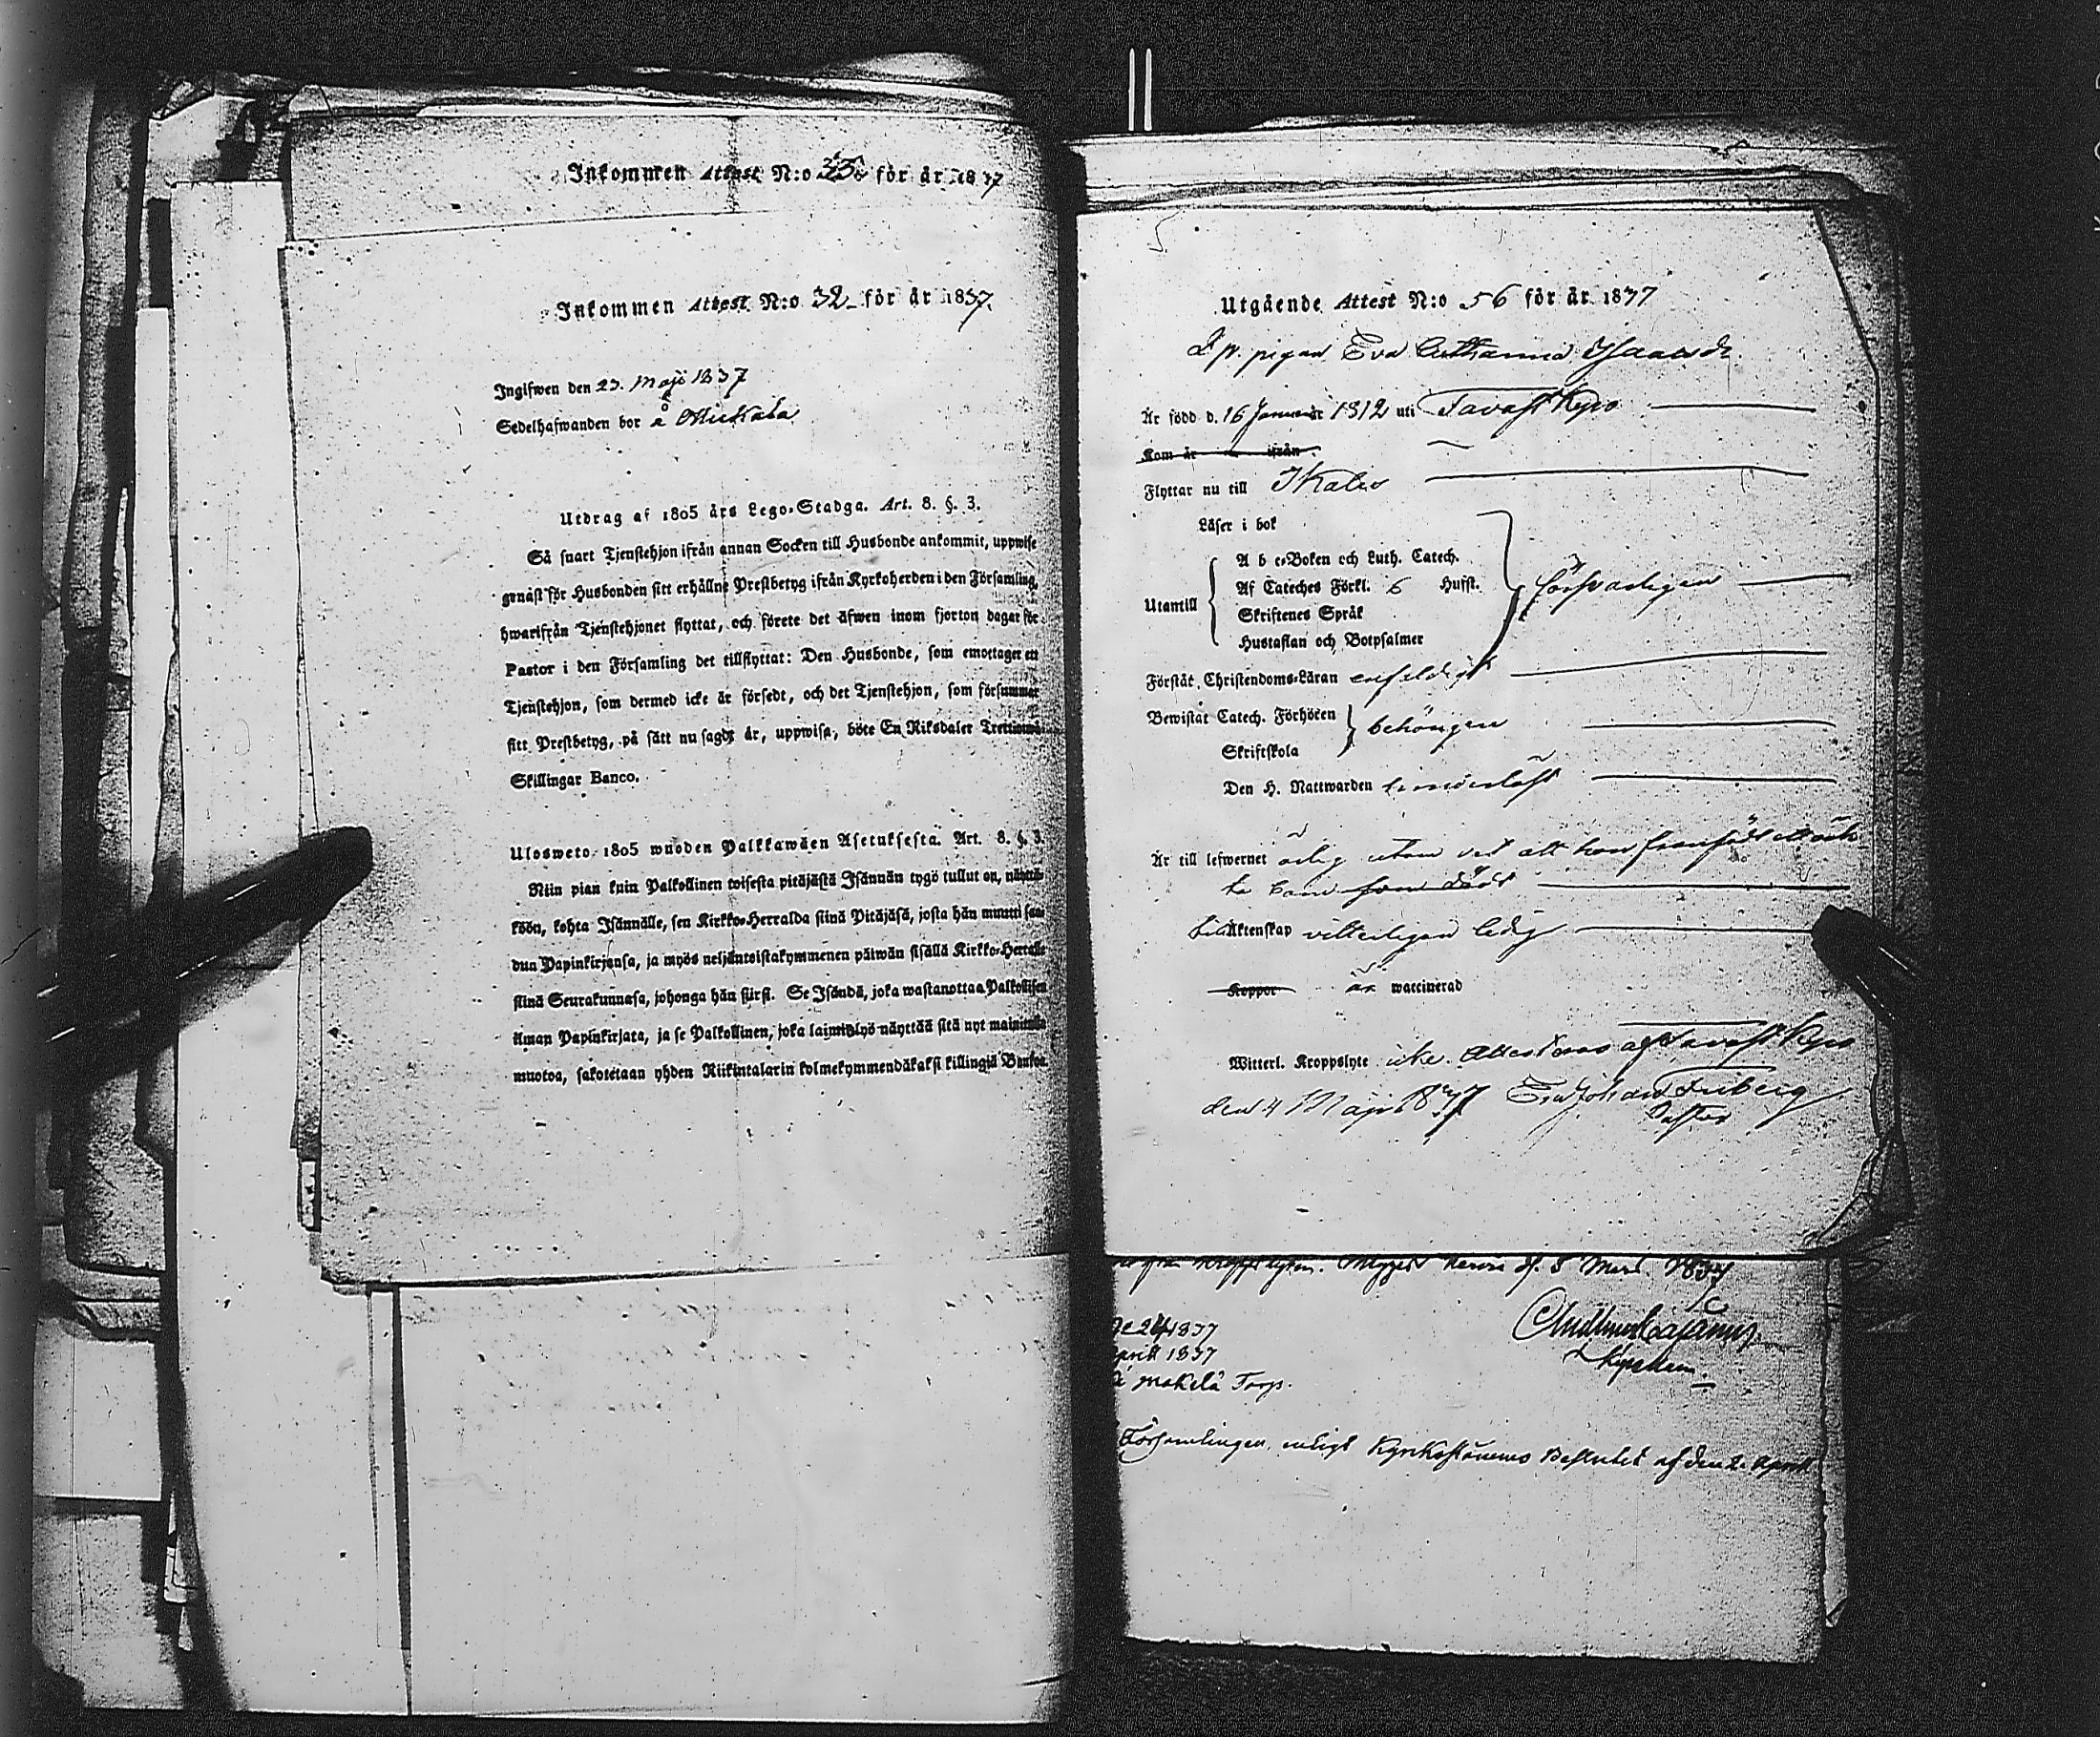 Inkommen Attest N:o 33. för år 1837
Inkommen Attest N:o 32 för år 1837.
Ingifwen den 23. Maji 1837
Sedelhafwanden bor å
Utdrag af 1805 års Lego-Stadga. Art. 8. §. 3.
Så snart Tjenstehjon ifrån annan Socken till Husbonde ankommit, uppwise
genast för Husbonden sitt erhållne Prestbetyg ifrån Kyrkoherden i den Församling,
hwarifrån Tjenstehjonet flyttat, och förete det äfwen inom fjorton dagar för
Pastor i den Församling det tillflyttat: Den Husbonde, som emottager ett
Tjenstehjon, som dermed icke är försedt, och det Tjenstehjon, som försummar
sitt Prestbetyg, på sätt nu sagdt är, uppwisa, böte En Riksdaler
Skillingar Banco.
Ulosweto 1805 wuoden Palkkawäen Asetuksesta. Art. 8. §. 3.
Niin pian kuin Palkollinen toisesta pitäjästä Isännän tygö tullut on, näyttä-
köön, kohta Isännälle, sen Kirkko-Herralda siinä Pitäjäsä, josta hän muutti saa-
dun Papinkirjansa, ja myös neljäntoistakymmenen päiwän sisällä Kirkko-Herralle
siinä Seurakunnasa, johonga hän siirsi. Se Isändä, joka wastanottaa Palkollisen
ilman Papinkirjata, ja se Palkollinen, joka laiminlyö näyttää sitä nyt mainittua
muotoa, sakotetaan yhden Riikintalarin kolmekymmendäkaksi killingiä Bankoa.
Utgående Attest N:o 56 för år 1837
pigan Eva Catharina Isaacsdr
Är född d. 16 Januarii 1812 uti Tavastkyro
Kom år ifrån
Flyttar nu till Ikalis
Läser i bok
A b c-Boken och Luth. Catech.
Utantill Af Cateches Förkl. 6 Hufst. försvarligen
Skriftenes Språk
Hustaflan och Botpsalmer
Förstår Christendoms-Läran enfeldigt
Bewistat Catech. Förhören behörigen
Skriftskola
Den H. Nattwarden
Är till lefwernet ärlig utom det att hon framfödt ett oäck
ta barn som dödt
till Äktenskap vitterligen ledig
Koppor är waccinerad
Witterl. Kroppslyte icke. Attesteras af Tavastkyro
den 4 Maji 1837 Johan Friberg
Pastor
d. 5 Mars 1837
24 1837
April 1837
Mäkelä Torp.
Församlingen, enligt Kyrkostämmo Beslutet af den 2. April